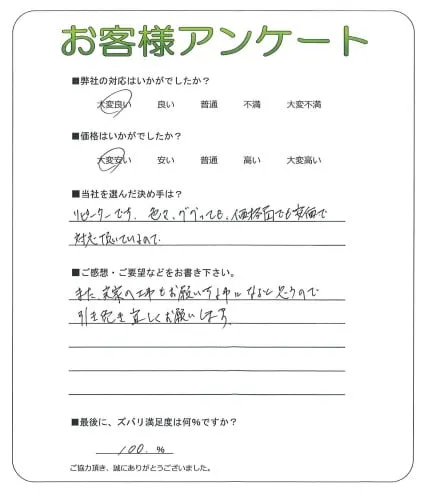 お客様アンケート
■弊社の対応はいかがでしたか？
大変良い 良い 普通 不満 大変不満
■価格はいかがでしたか？
大変安い 安い 普通 高い 大変高い
■当社を選んだ決め手は？
リピーターです。色々、ググっても、価格面でも安価で
対応頂いているので。
■ご感想・ご要望などをお書き下さい。
また、実家の工事もお願いする事になると思うので
引き続き宜しくお願いします。
■最後に、ズバリ満足度は何％ですか？
100. %
ご協力頂き、誠にありがとうございました。